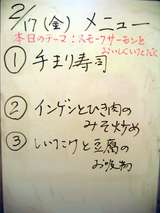 2/17(金) メニュー
本日のテーマ:スモークサーモンと
おいしく
① 手まり寿司
② インゲンとひき肉の
みそ炒め
③ しいたけと豆腐の
お吸物